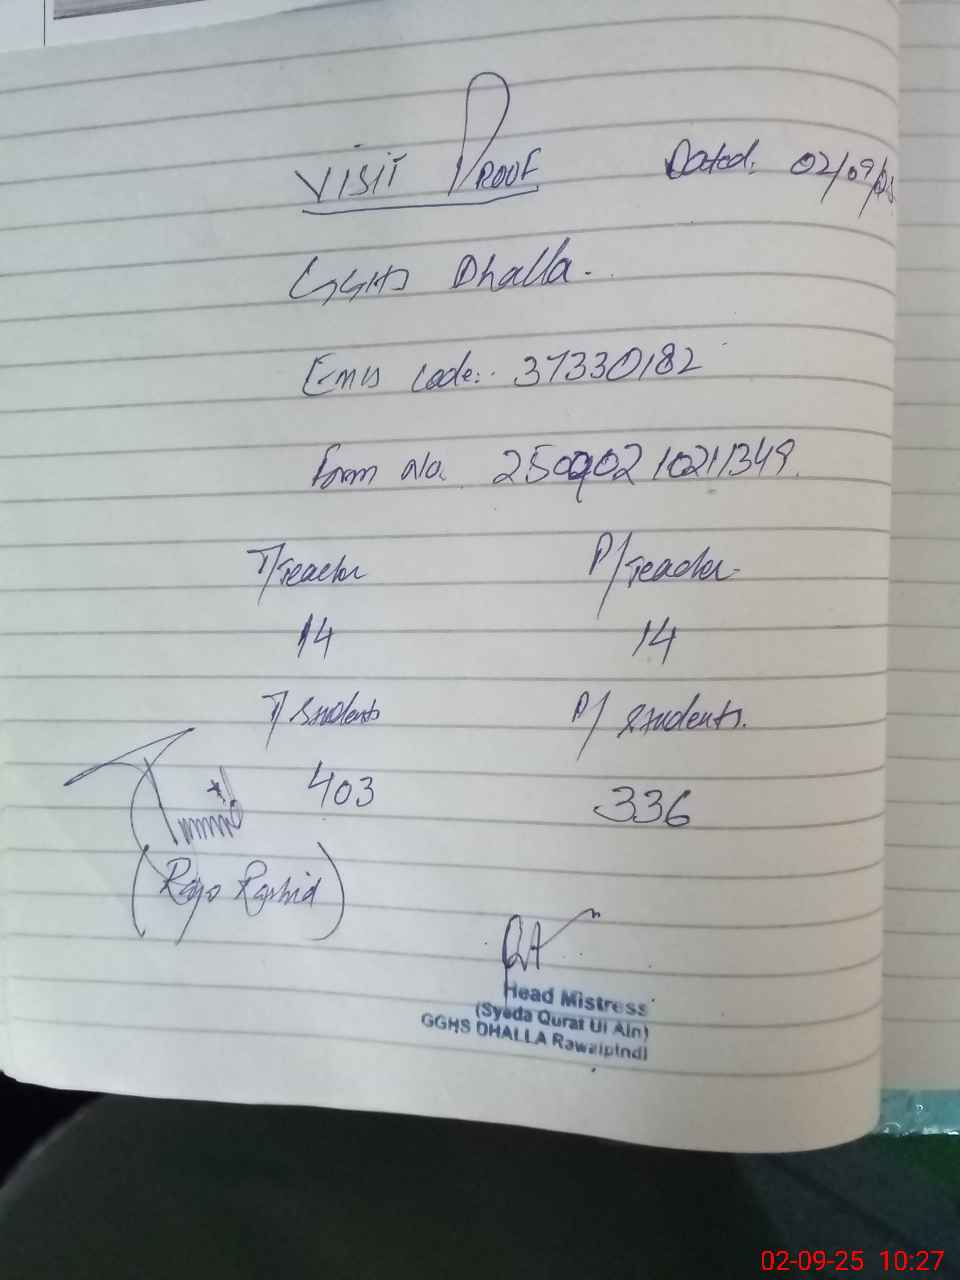 VISIT PROOF Dated: 02/09/25
GGHS Dhalla.
Emis Code: 37330182
Form No. 25090210211349.
T/Teacher P/Teacher
14 14
T/Students P/Students.
403 336
Rashid
Head Mistress
(Syeda Qurat Ul Ain)
GGHS DHALLA Rawalpindi
02-09-25 10:27